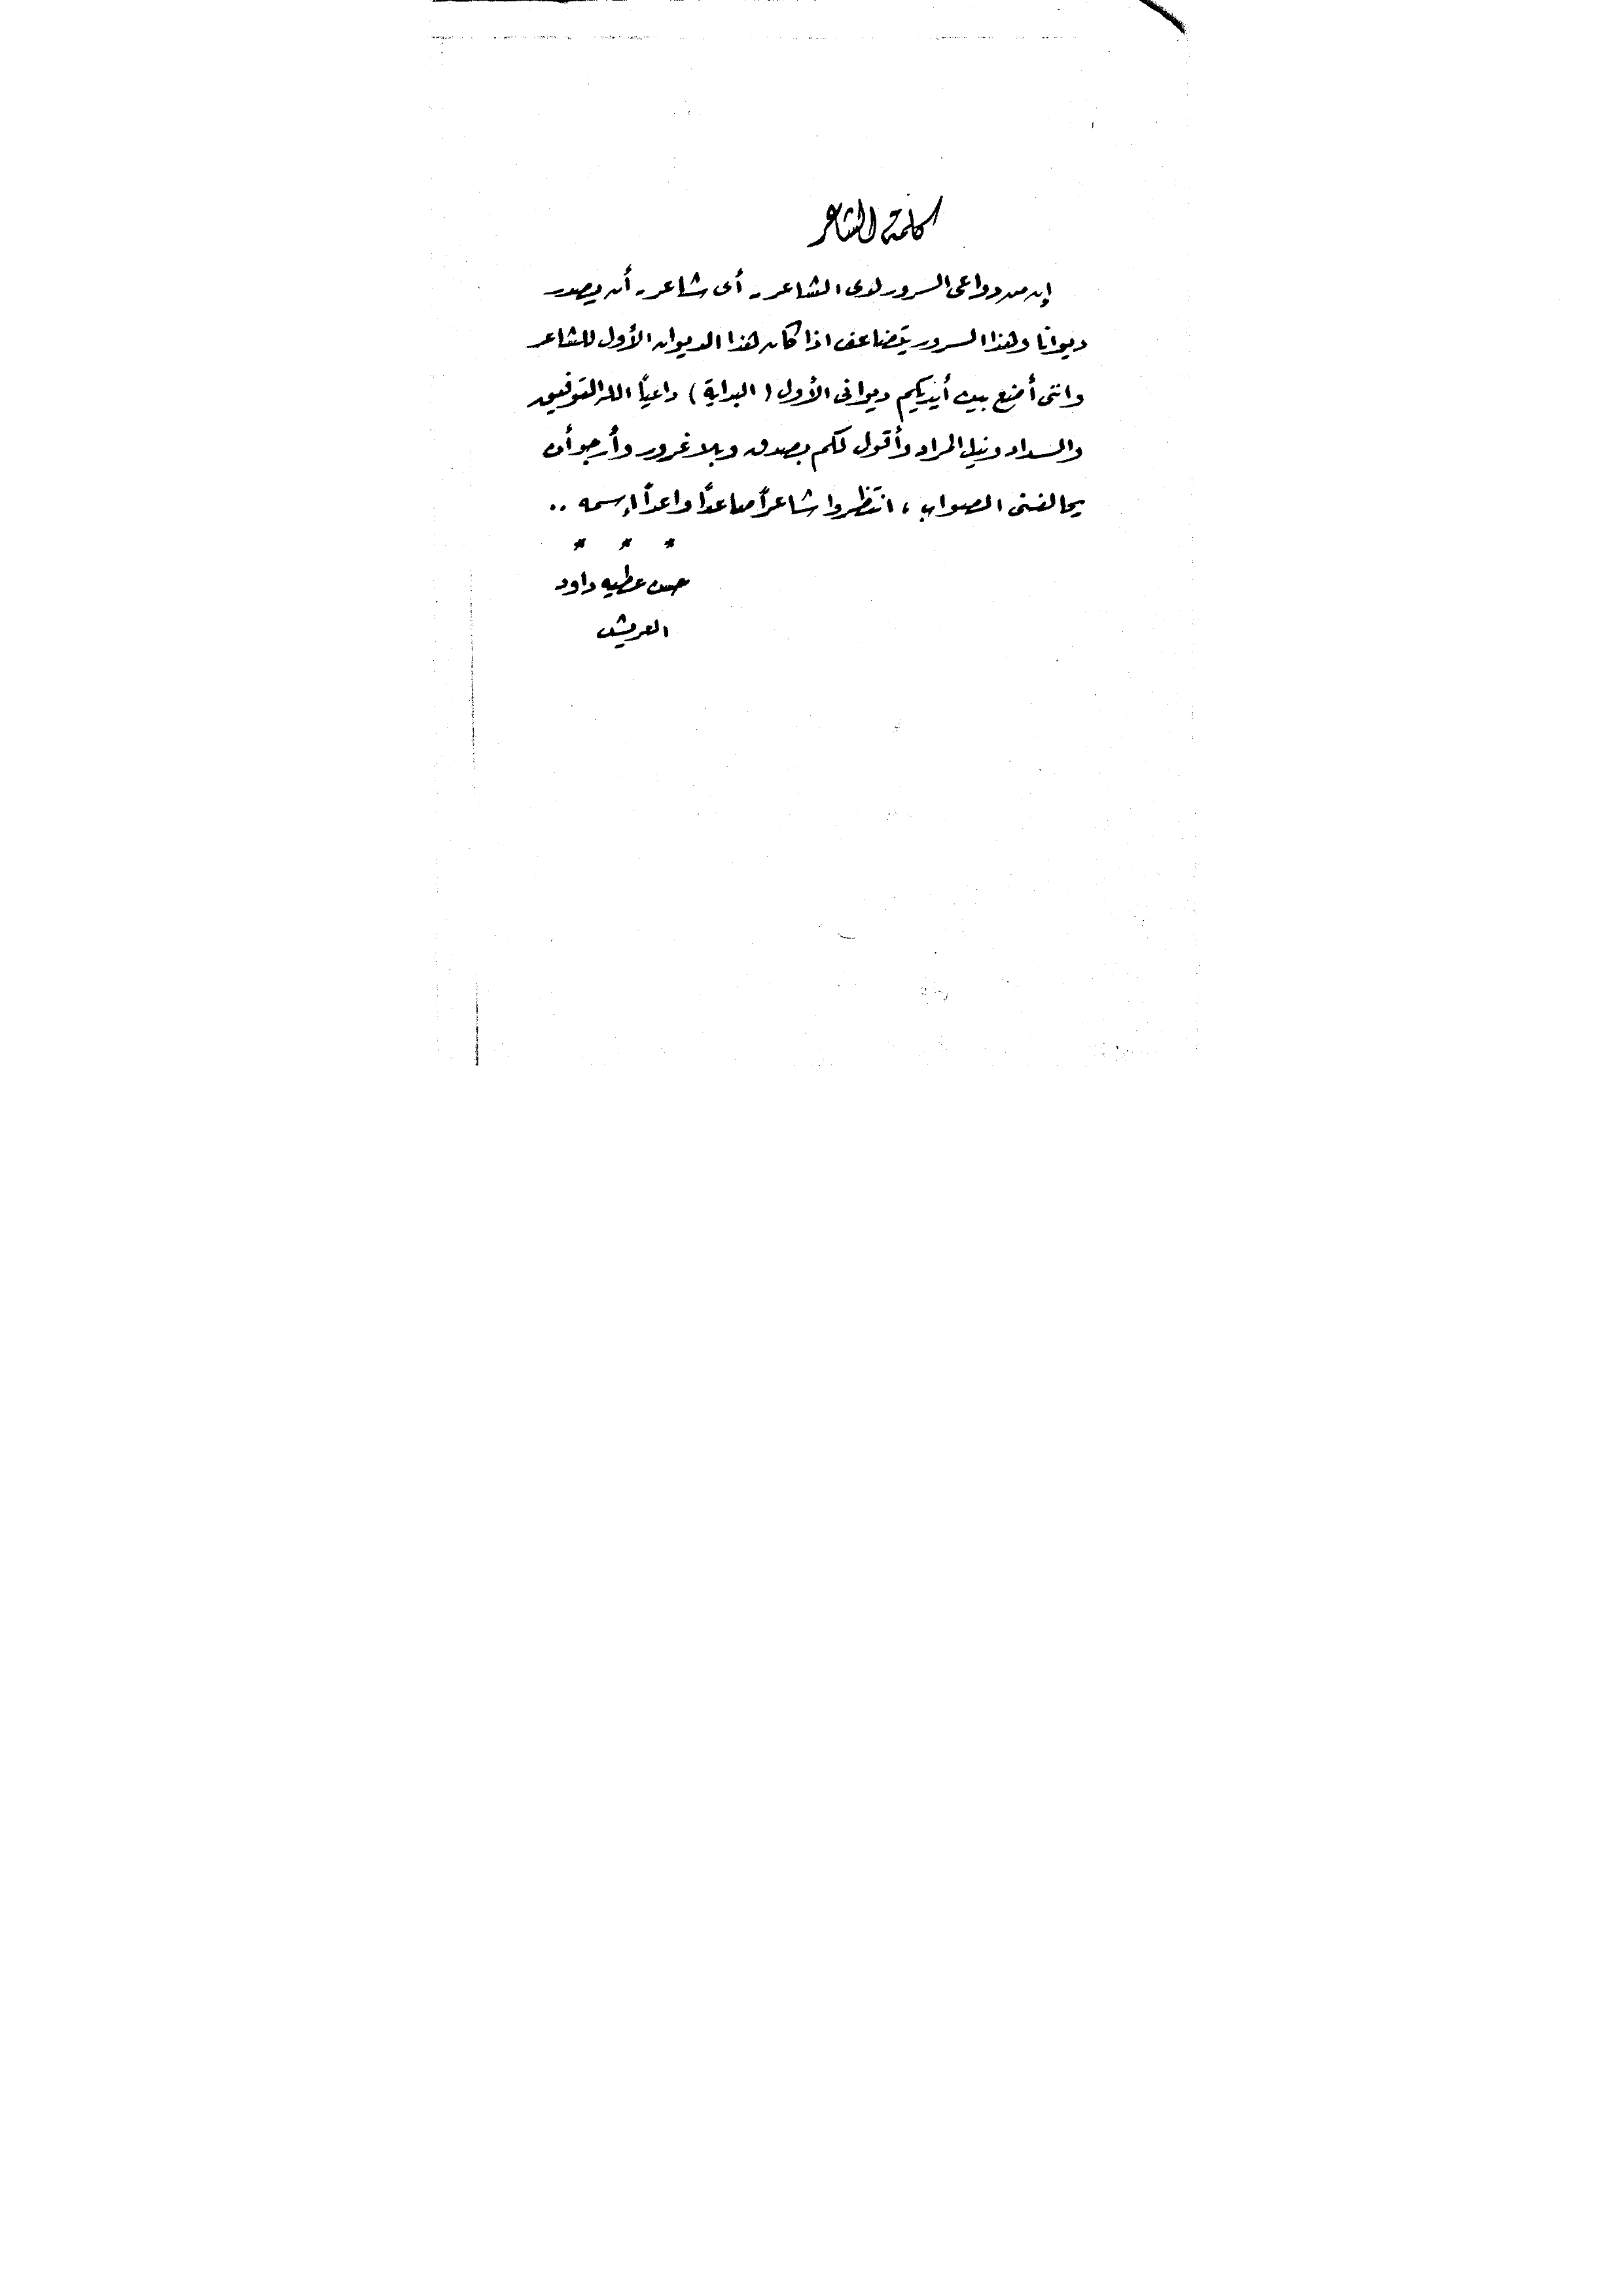 كلمة الشاعر
إن من دواعى السرور لدى الشاعر - أى شاعر - أن يصدر
ديوانا وهذا السرور يتضاعف اذا كان هذا الديوان الأول للشاعر
واننى أضع بين أيديكم ديوانى الأول ( البداية ) داعياً الله التوفيق
والسداد ونيل المراد وأقول لكم بصدق وبلا غرور وأرجو أن
يحالفنى الصواب ، انتظروا شاعراً صاعداً واعداً إسمه ..
* * *
حسن عطيه داود
العريش